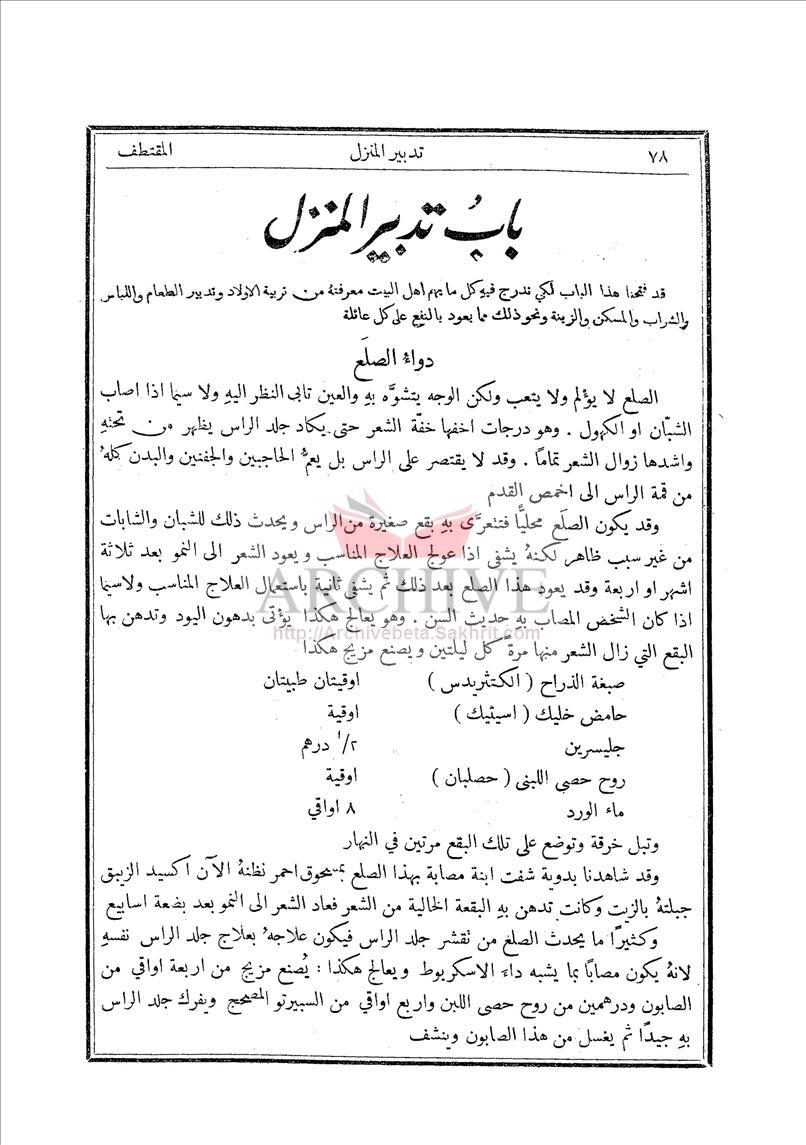 ٧٨ تدبير المنزل المقتطف
باب تدبير المنزل
قد فتحنا هذا الباب لكي ندرج فيهِ كل ما يهم اهل البيت معرفتهُ من تربية الاولاد وتدبير الطعام واللباس
والشراب والمسكن والزينة ونحو ذلك مما يعود بالنفع على كل عائلة
دواءُ الصلَع
الصلع لا يؤلم ولا يتعب ولكن الوجه يتشوَّه بهِ والعين تابى النظر اليهِ ولا سيما اذا اصاب
الشبَّان او الكهول . وهو درجات اخفها خفَّة الشعر حتى يكاد جلد الراس يظهر من تحتهِ
واشدها زوال الشعر تمامًا . وقد لا يقتصر على الراس بل يعمُّ الحاجبين والجفنين والبدن كلهُ
من قمة الراس الى اخمص القدم
وقد يكون الصلَع محليًّا فتتعرَّى بهِ بقع صغيرة من الراس ويحدث ذلك للشبان والشابات
من غير سبب ظاهر لكنهُ يشفى اذا عولج العلاج المناسب ويعود الشعر الى النمو بعد ثلاثة
اشهر او اربعة وقد يعود هذا الصلع بعد ذلك ثم يشفى ثانية باستعمال العلاج المناسب ولاسيما
اذا كان الشخص المصاب بهِ حديث السن . وهو يعالج هكذا يؤتى بدهون اليود وتدهن بها
البقع التي زال الشعر منها مرةً كل ليلتين ويصنع مزيج هكذا
صبغة الذراح ( الكنثريدس ) اوقيتان طبيتان
حامض خليك ( اسيتيك ) اوقية
جليسرين ١/٢ درهم
روح حصى اللبنى ( حصلبان ) اوقية
ماء الورد ٨ اواقي
وتبل خرقة وتوضع على تلك البقع مرتين في النهار
وقد شاهدنا بدوية شفت ابنة مصابة بهذا الصلع بمسحوق احمر نظنهُ الآن اكسيد الزيبق
جبلتهُ بالزيت وكانت تدهن بهِ البقعة الخالية من الشعر فعاد الشعر الى النمو بعد بضعة اسابيع
وكثيرًا ما يحدث الصلغ من تقشر جلد الراس فيكون علاجهُ بعلاج جلد الراس نفسهِ
لانهُ يكون مصابًا بما يشبه داءَ الاسكربوط ويعالج هكذا : يُصنع مزيج من اربعة اواقي من
الصابون ودرهمين من روح حصى اللبن واربع اواقي من السبيرتو المصحح ويفرك جلد الراس
بهِ جيدًا ثم يغسل من هذا الصابون وينشف
ARCHIVE
http://Archivebeta.Sakhrit.com